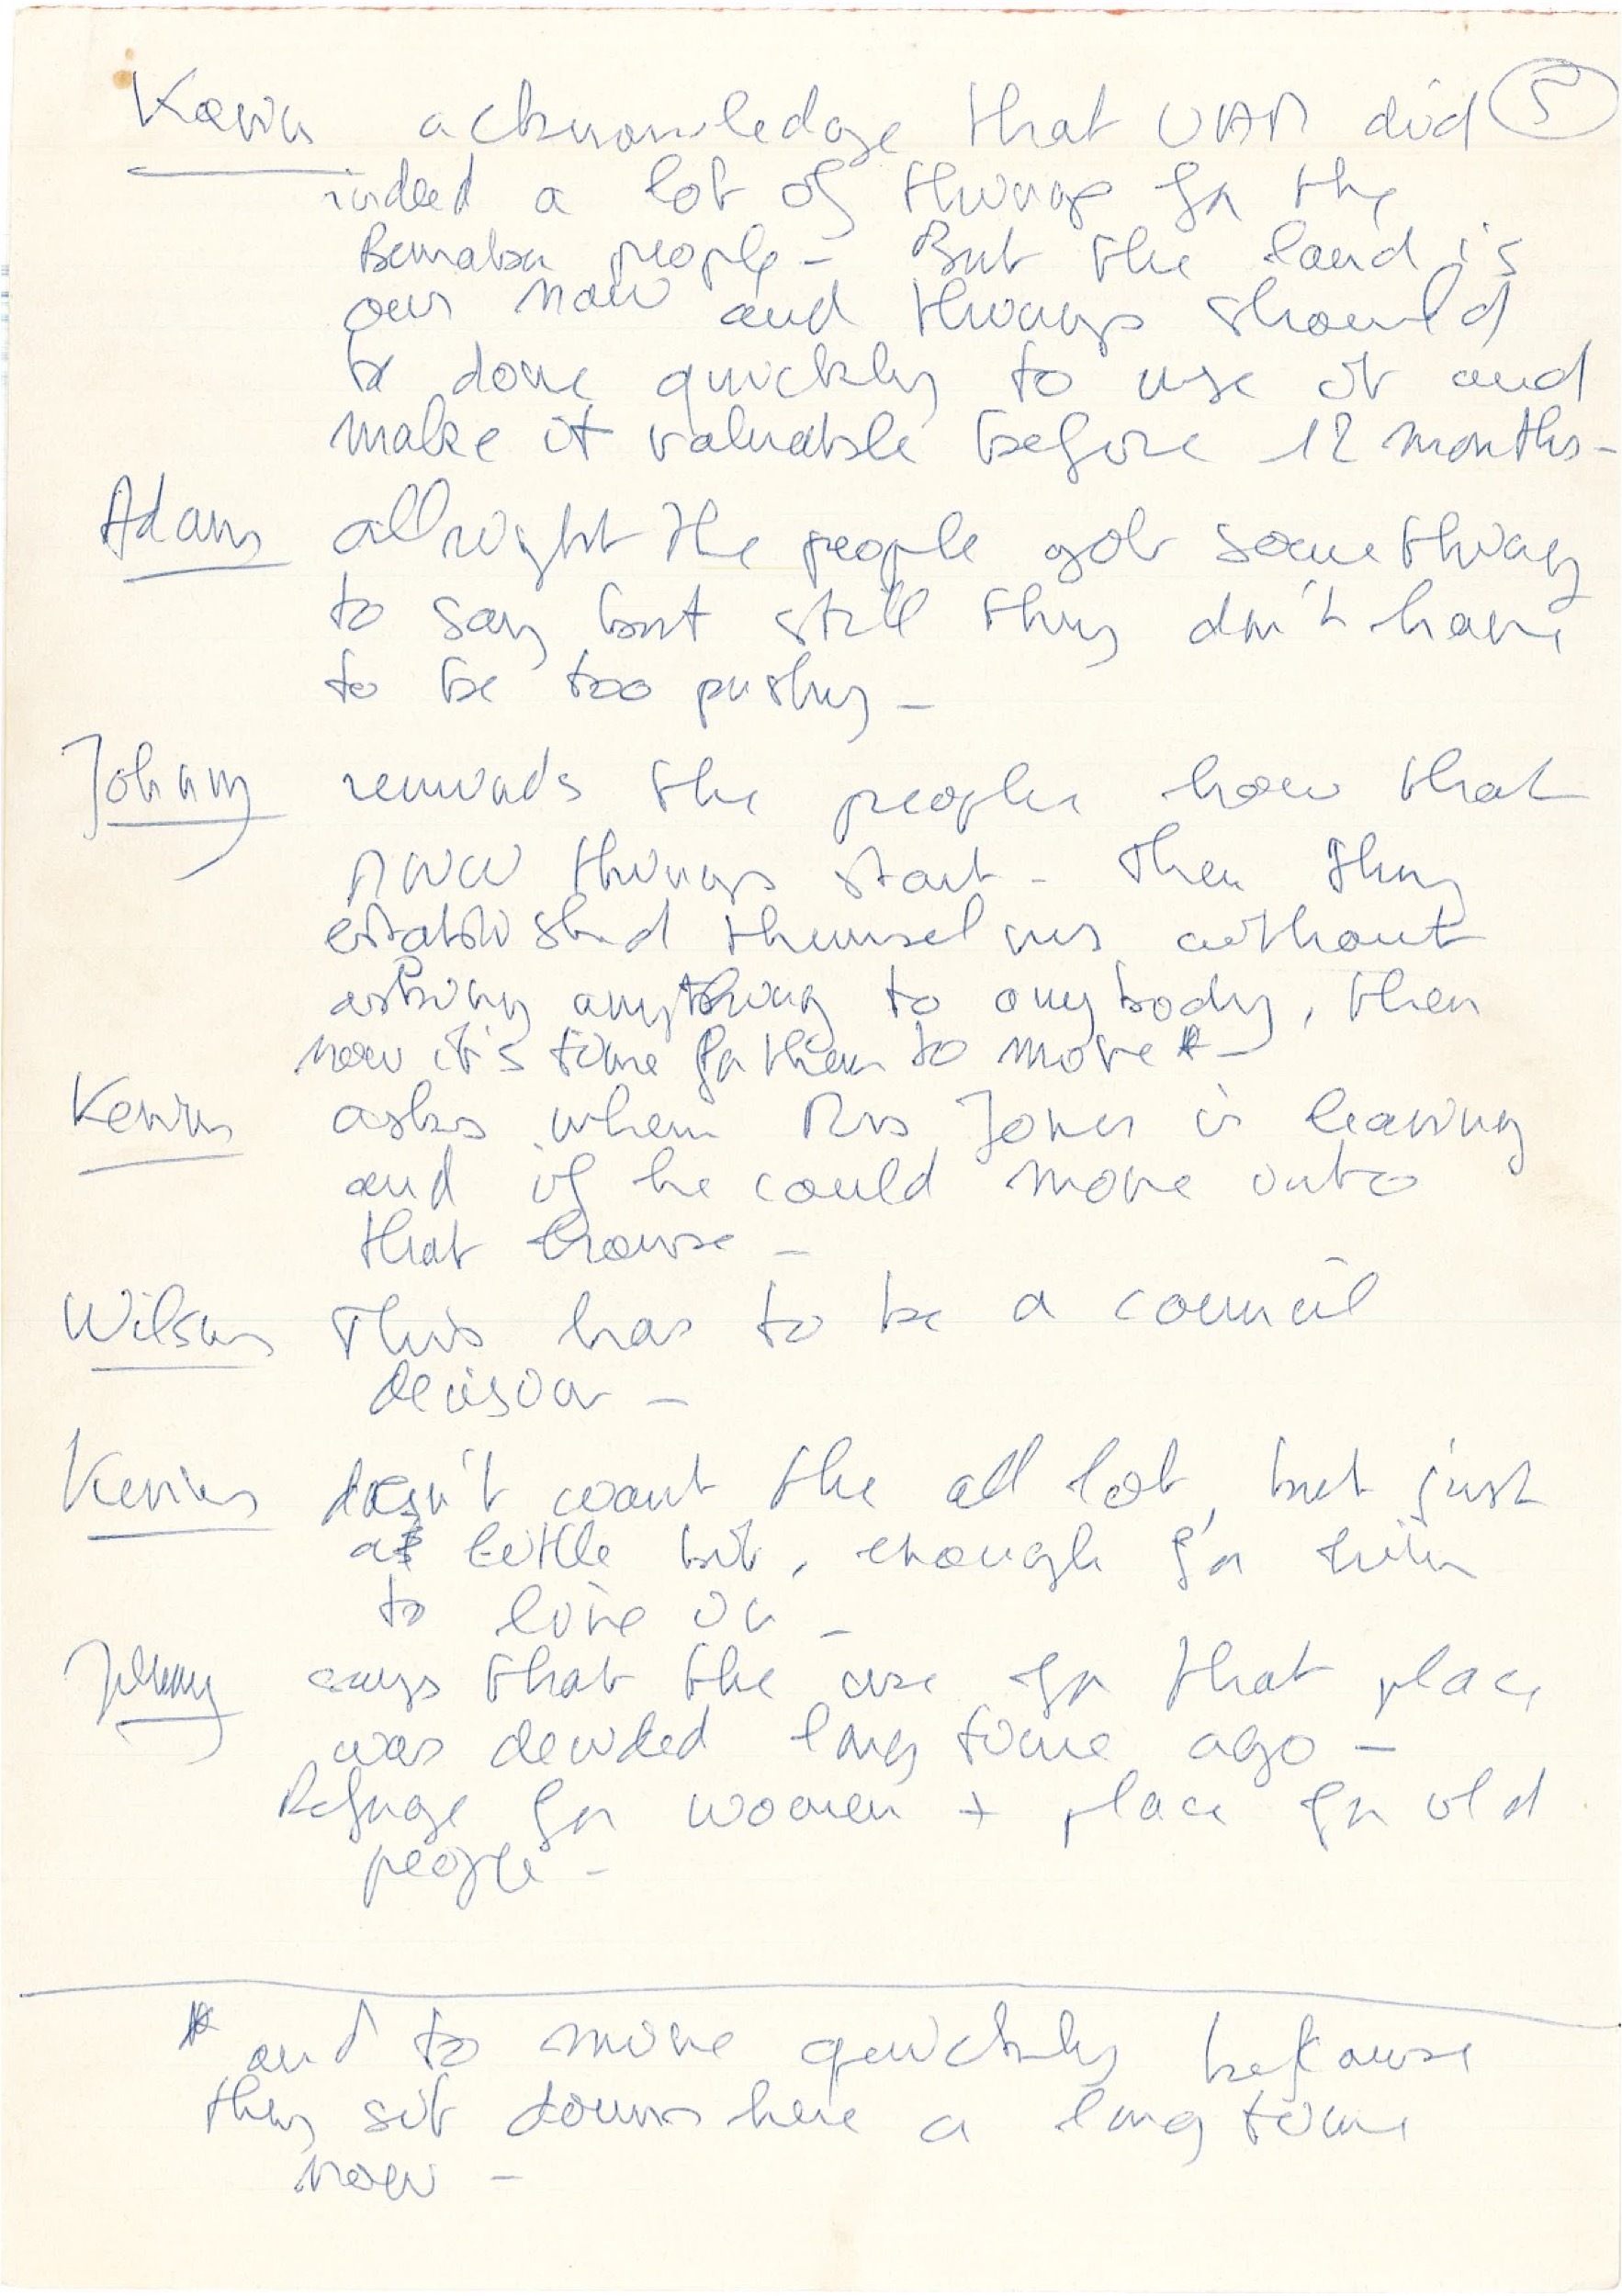 Kevin acknowledge that UAM did 5
indeed a lot of things for the
people - But the land is
our now and things should
be done quickly to use it and
make it valuable before 12 months -
Adams all right the people got something
to say but still they don't have
to be too pushy -
Johnny reminds the people how that
things start - Then they
established themselves without
asking anything to anybody, then
now it's time for them to move * -
Kevin asks when Mrs Jones is leaving
and if he could move into
that house -
Wilson This has to be a council
decision -
Kevin doesn't want the all lot, but just
a little bit, enough for him
to live on -
Johnny says that the use for that place
was decided long time ago -
Refuge for women + place for old
people -
* and to move quickly because
they sit down here a long time
now -